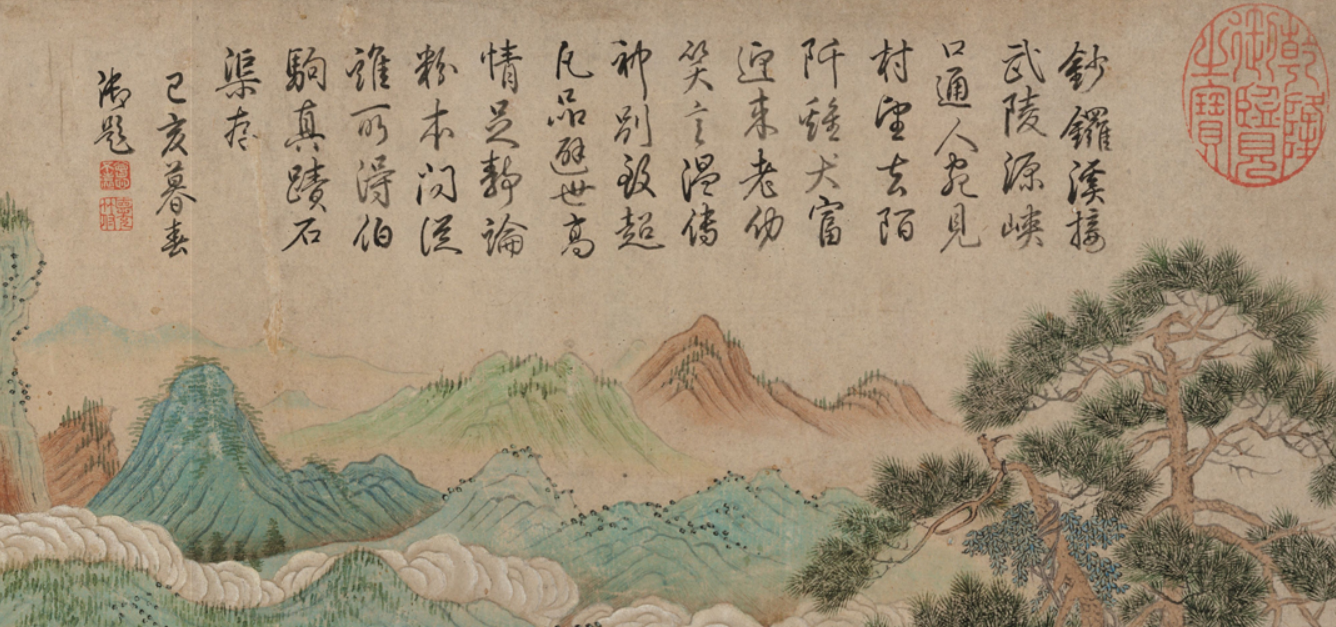 乾隆御覽之寶
鈔鑼溪接
武陵源峽
口通人宛見
村望去陌
阡雞犬富
迎来老幼
笑言温傳
神別致超
凡品避世高
情足靜論
粉本問從
誰所得伯
駒真蹟石
渠存
己亥暮春
御題